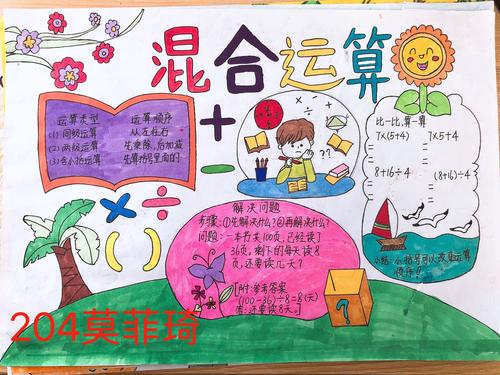 混合运算
运算类型 运算顺序
(1) 同级运算 从左往右
(2) 两级运算 先乘除,后加减
(3) 含小括号运算 先算括号里面的
比一比,算一算
7×(5+4) 7×5+4
= =
= =
8+16÷4 (8+16)÷4
= =
= =
小结:小括号可以改变运算
顺序!!
解决问题
步骤:①先解决什么?②再解决什么?
问题:一本书共100页,已经读了
36页,剩下的每天读8
页,还要读几天?
附:参考答案
(100-36)÷8=8(天)
答:还要读8天。
??
?
204莫菲琦